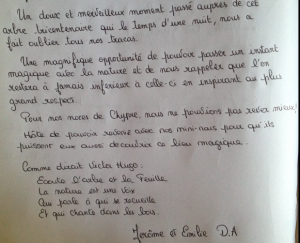 Un doux et merveilleux moment passé auprès de cet
arbre tricentenaire qui le temps d'une nuit, nous a
fait oublier tous nos tracas.
Une magnifique opportunité de pouvoir passer un instant
magique avec la nature et de nous rappeler que l'on
restera à jamais inférieur à celle-ci en inspirant au plus
grand respect.
Pour nos noces de Chypre, nous ne pouvions pas rêver mieux!
Hâte de pouvoir revenir avec nos mini-nous pour qu'ils
puissent eux aussi découvrir ce lieu magique.
Comme dirait Victor Hugo:
Ecoute l'arbre et la feuille
La nature est une voix
Qui parle à qui se recueille
Et qui chante dans les bois.
Jérôme et Emilie D.A